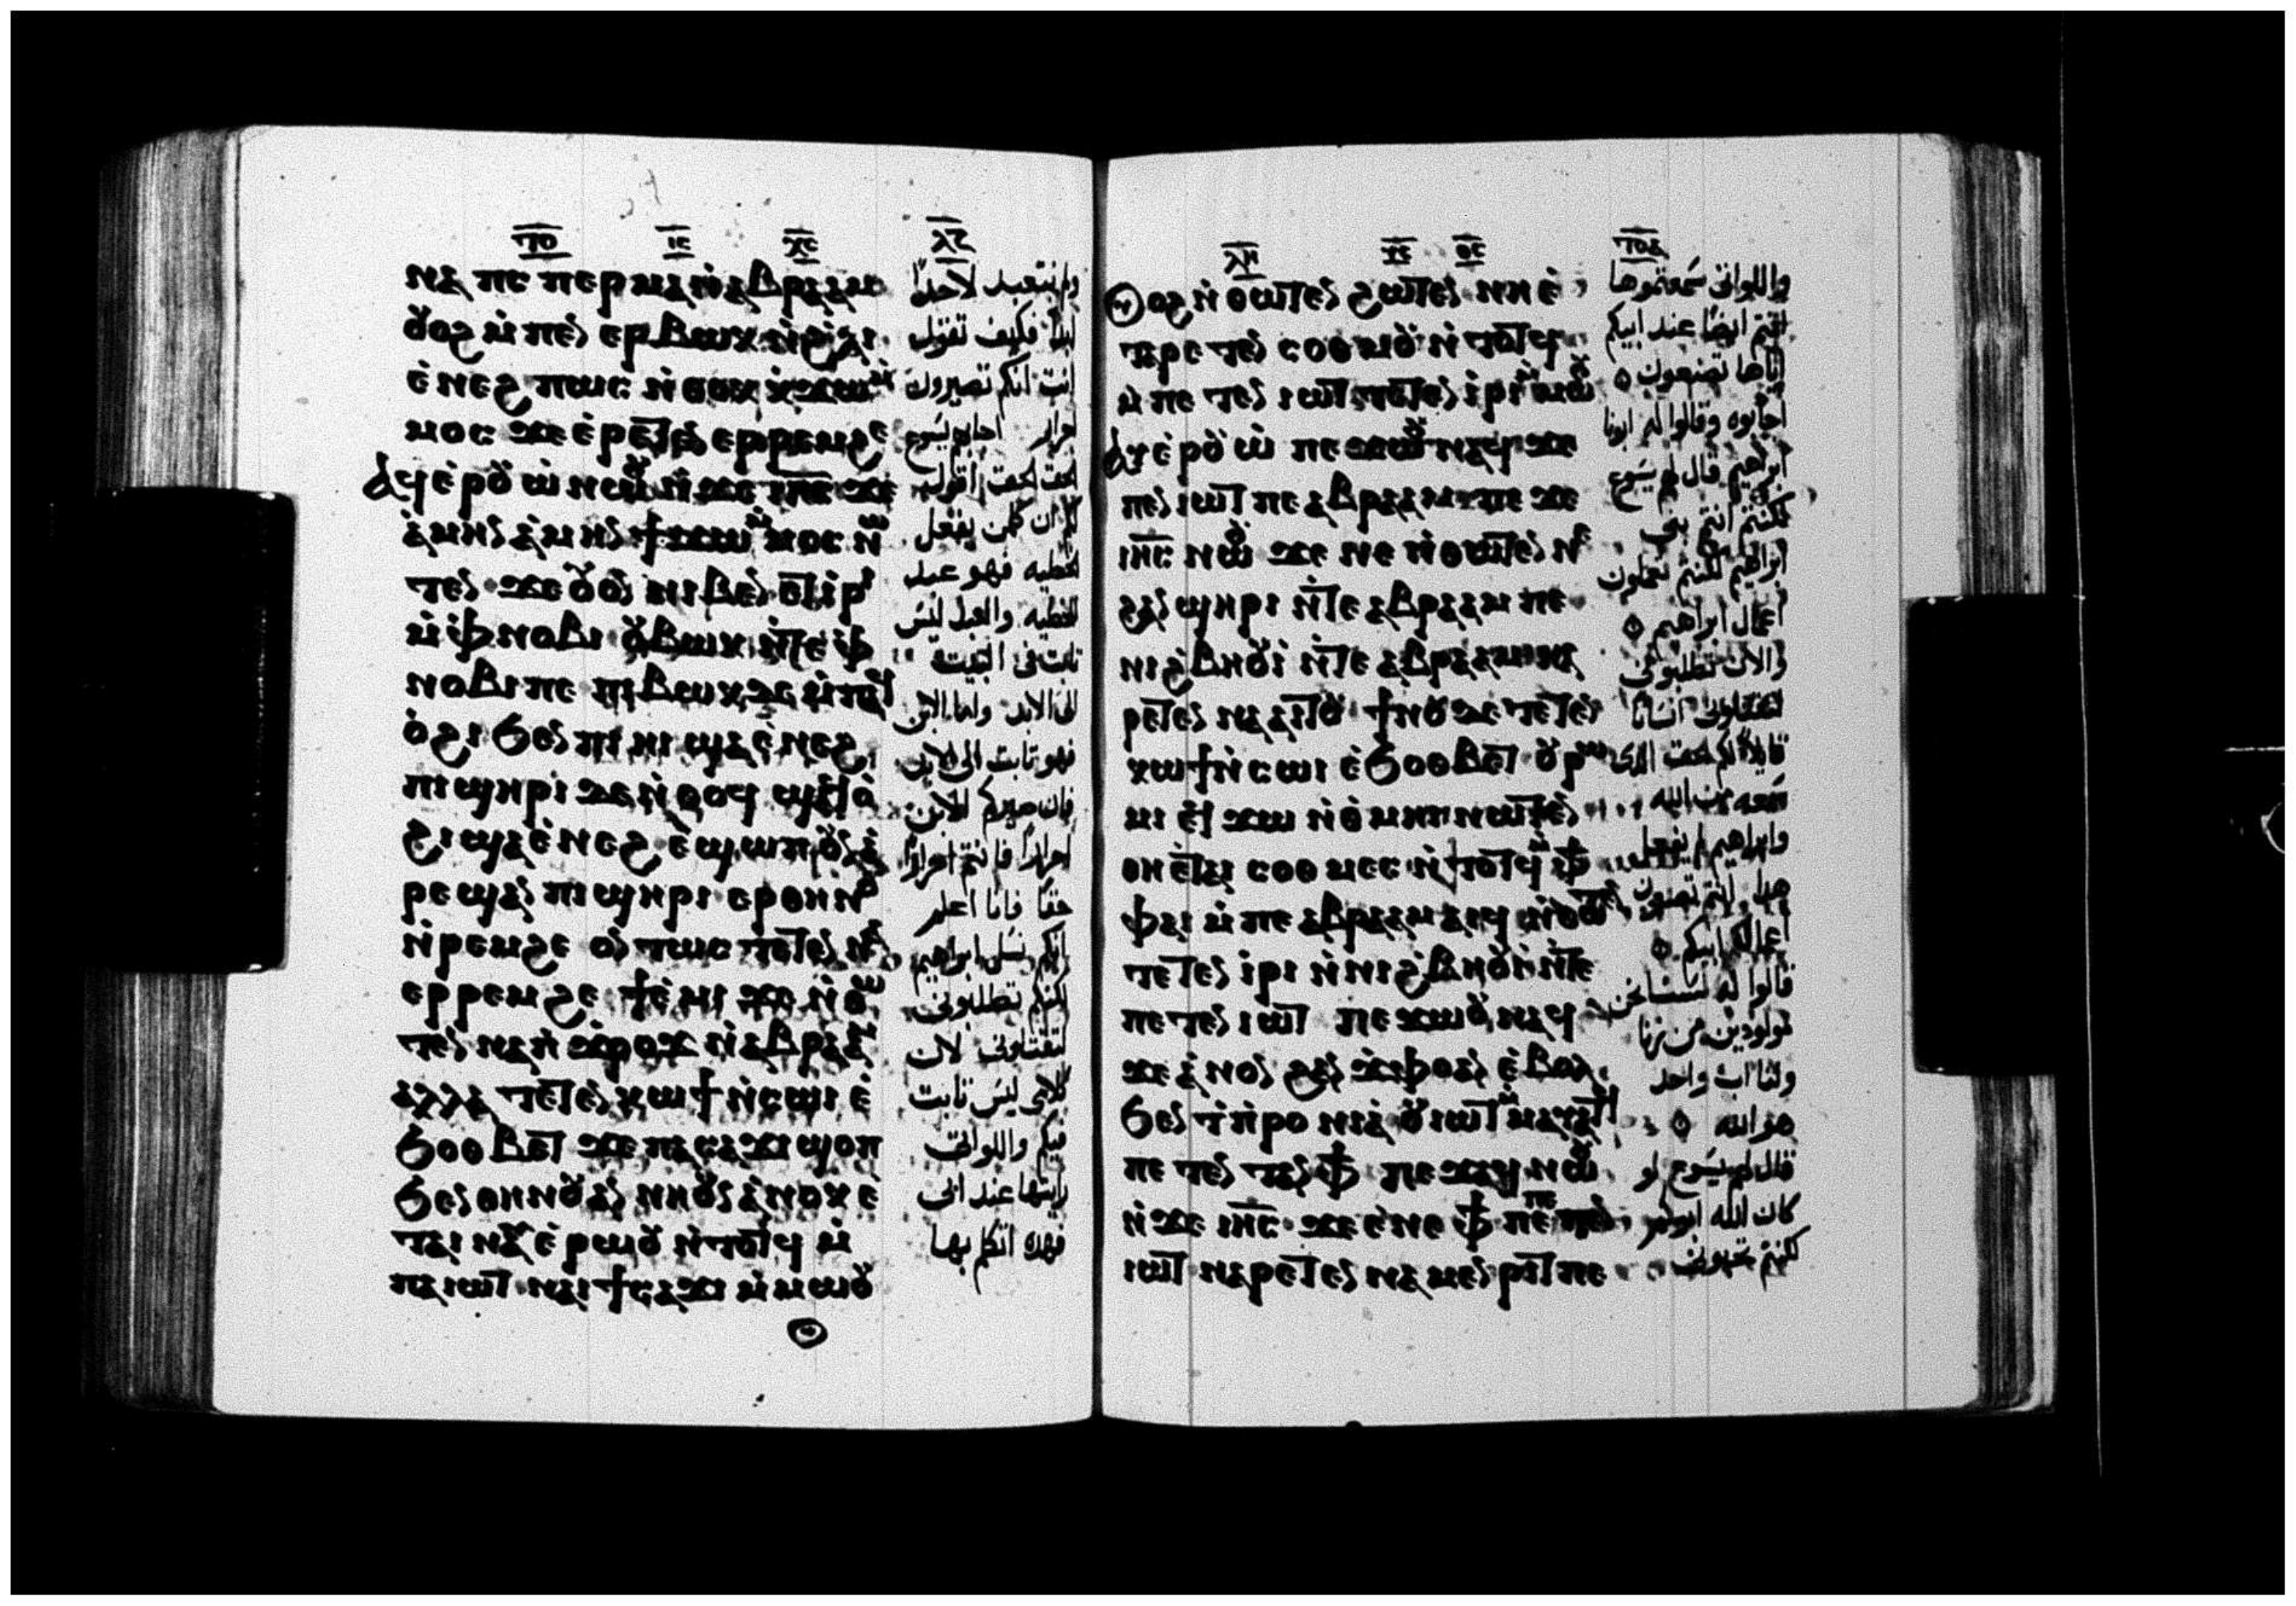 ⲧⲟ ⲓⲥ ⲭⲥ ⲗⲍ
ⲛⲁ ⲡⲉ ⲡⲉⲣⲙⲁ ⲛ̀ⲁⲃⲣⲁⲁⲙ
ⲟⲩⲟϩ ⲙ̀ⲡⲉⲛ ⲉⲣⲃⲱⲕ ⲛ̀ϩ̀ⲗⲓ
ⲉ̀ⲛⲉϩ ⲡⲱⲥ ⲛ̀ⲑⲟⲕ ⲕ̀ϫⲱⲙ̀
ⲙⲟⲥ ϫⲉ ⲉ̀ⲣⲉⲧⲉⲛⲉ̀ ⲉⲣⲣⲉⲙϩⲉ
ⲁϥⲉ̀ⲣⲟⲩⲱ̀ ⲛⲱⲟⲩ ⲛ̀ϫⲉ ⲓⲏⲥ ϫⲉ
ⲁ̀ⲙⲏⲛ ⲁ̀ⲙⲏⲛ ϯϫⲱ ⲙ̀ⲙⲟⲥ ⲛⲱ
ⲧⲉⲛ ϫⲉ ⲟⲩⲟⲛ ⲛⲓⲃⲉⲛ ⲉⲧⲓⲣⲓ
ⲙ̀ⲫⲛⲟⲃⲓ ⲟⲩⲃⲱⲕ ⲛ̀ⲧⲉ ⲫ
ⲛⲟⲃⲓ ⲡⲉ ⲡⲓⲃⲱⲕ ϫⲉ ⲙ̀ⲡⲁϥ
ⲟ̀ϩⲓ ϧⲉⲛ ⲡⲓⲏⲓ ϣⲁⲉ̀ⲛⲉϩ
ⲡⲓϣⲏⲣⲓ ϫⲉ ⲛ̀ⲑⲟϥ ϣⲁϥⲟ̀
ϩⲓ ϣⲁⲉ̀ⲛⲉϩ ⲉ̀ϣⲱⲡ ⲟⲩⲛ ⲁ̀
ⲣⲉϣⲁⲛ ⲡⲓϣⲏⲣⲓ ⲉⲣⲑⲏⲛⲟⲩ
ⲛ̀ⲣⲉⲙϩⲉ ⲟⲛⲧⲱⲥ ⲧⲉⲧⲉⲛⲛⲁ
ⲉⲣⲣⲉⲙϩⲉ ϯⲉ̀ⲙⲓ ϫⲉ ⲛ̀ⲑⲱ
ⲧⲉⲛ ⲛⲁⲛ ϫ̀ⲣⲟϫ ⲛ̀ⲁⲃⲣⲁⲁⲙ
ⲁⲗⲗⲁ ⲧⲉⲧⲉⲛⲕⲱϯ ⲛ̀ⲥⲱⲓ ⲉ̀
ϧⲟⲑⲃⲉⲧ ϫⲉ ⲡⲁⲥⲁϫⲓ ϣⲟⲡ
ϧⲉⲛ ⲑⲏⲛⲟⲩ ⲁⲛ ⲛⲏⲟⲩⲛ ⲁ̀ⲛⲟⲕ ⲉ̀
ⲧⲁⲓ ⲛⲁⲩ ⲉ̀ⲣⲱⲟⲩ ⲛ̀ⲧⲟⲧϥ ⲙ̀
ⲡⲁⲓⲱⲧ ⲛⲁⲓ ϯⲥⲁϫⲓ ⲙ̀ⲙⲱⲟⲩ
ولم نتعبد لاحد
ابدا فكيف تقول
انت انكم تصيرون
احرار اجابهم يسوع
الحق الحق اقول
لكم ان كلمن يفعل
الخطيه فهو عبد
الخطيه والعبد ليس
ثابت فى البيت
الى الابد واما الابن
فهو ثابت الى الابد
فان صيركم الابن
احرارا فانتم احرارا
حقا فانا اعلم
انكم نسل ابراهيم
لكنكم تطلبونى
لتقتلونى لان
كلامى ليس ثابت
فيكم واللواتى
رايتها عند ابى
فهذه اتكلم بها
ⲗⲏ ⲩⲥ ⲑⲥ ⲧⲟⲁ
ⲟⲩⲟϩ ⲛ̀ⲑⲱⲧⲉⲛ ϩⲱⲧⲉⲛ ⲛⲏ ⲉ̀
ⲧⲁⲣⲉⲧⲉⲛ ⲥⲟⲑⲙⲟⲩ ⲛ̀ⲧⲟⲧϥ
ⲙ̀ⲡⲉⲧⲉⲛⲓⲱⲧ ⲧⲉⲧⲉⲛⲓ̀ⲣⲓ ⲙ̀ⲙⲱⲟⲩ
ⲁⲩⲉ̀ⲣⲟⲩⲱ̀ ⲡⲉϫⲱⲟⲩ ⲛⲁϥ ϫⲉ
ⲡⲉⲛⲓⲱⲧ ⲡⲉ ⲁⲃⲣⲁⲁⲙ ⲡⲉϫⲉ
ⲓⲏⲥ ⲛⲱⲟⲩ ϫⲉ ⲛⲉ ⲛ̀ⲑⲱⲧⲉⲛ
ϩⲁⲛϣⲏⲣⲓ ⲛ̀ⲧⲉ ⲁⲃⲣⲁⲁⲙ ⲡⲉ
ⲛⲓϩ̀ⲃⲏⲟⲩⲓ̀ ⲛ̀ⲧⲉ ⲁⲃⲣⲁⲁⲙ ⲛⲁ
ⲣⲉⲧⲉⲛ ⲛⲁⲁⲓⲧⲟⲩ ϯⲛⲟⲩ ϫⲉ ⲧⲉⲧⲉⲛ
ⲕⲱϯ ⲛ̀ⲥⲱⲓ ⲉ̀ϧⲟⲑⲃⲉⲧ ⲟⲩⲣⲱ
ⲙⲓ ⲉϥϫⲱ ⲛ̀ⲑ̀ⲙⲏⲓ ⲛⲱⲧⲉⲛ
ⲑⲏ ⲉ̀ⲧⲁⲓ ⲥⲟⲑⲙⲉⲥ ⲛ̀ⲧⲟⲧϥ ⲙ̀ⲫϯ
ⲫⲁⲓ ⲙ̀ⲡⲉ ⲁⲃⲣⲁⲁⲙ ⲁⲓϥ ⲛ̀ⲑⲱⲧⲉⲛ
ⲧⲉⲧⲉⲛ ⲓ̀ⲣⲓ ⲛ̀ⲛⲓϩ̀ⲃⲏⲟⲩⲓ̀ ⲛ̀ⲧⲉ
ⲡⲉⲧⲉⲛⲓⲱⲧ ⲡⲉϫⲱⲟⲩ ⲛⲁϥ
ϫⲉ ⲁ̀ⲛⲟⲛ ϩⲁⲛ ϫ̀ⲫⲟ ⲁⲛ ⲉ̀ⲃⲟⲗ
ϧⲉⲛ ϯⲡⲟⲣⲛⲓⲁ̀ ⲟⲩⲓⲱⲧ ⲙ̀ⲙⲁⲩⲁⲧϥ
ⲡⲉⲧⲉⲛⲧⲁⲛ ⲫϯ ⲡⲉϫⲁϥ ⲛⲱⲟⲩ
ⲛ̀ϫⲉ ⲓⲏⲥ ϫⲉ ⲉ̀ⲛⲉ ⲫϯ ⲡⲉ ⲡⲉⲧⲉⲛ
ⲓⲱⲧ ⲛⲁⲣⲉⲧⲉⲛ ⲛⲁⲙⲉⲛⲣⲓⲧ ⲡⲉ
واللواتى سمعتموها
انتم ايضا عند ابيكم
اياها تصنعون
اجابوه وقالوا له ابونا
ابراهيم قال لهم يسوع
لو كنتم انتم بنى
ابراهيم لكنتم تعملون
اعمال ابراهيم
والان تطلبونى
لتقتلونى انسانا
قايلا لكم الحق الذى
سمعه من الله
وابراهيم لم يفعل
هذا انتم تصنعون
اعمال ابيكم
قالوا له لسنا نحن
مولودين من زنا
ولنا اب واحد
هو الله
قال لهم يسوع لو
كان الله ابوكم
لكنتم تحبونى